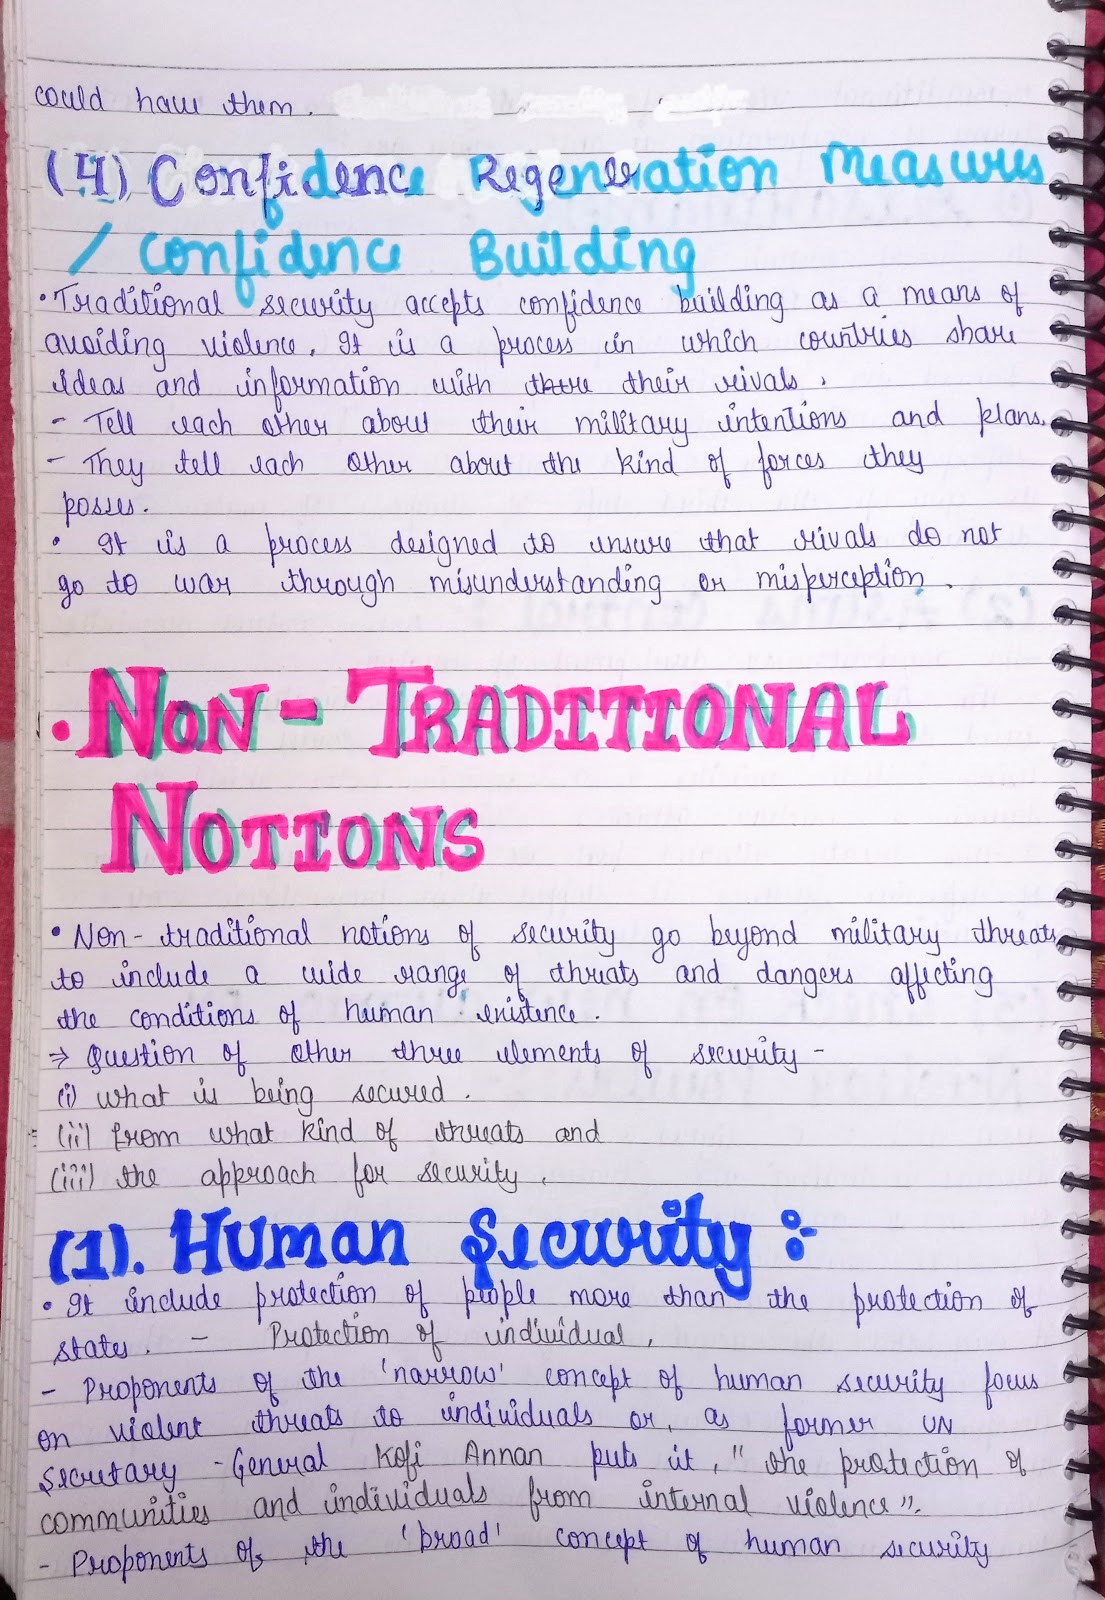 could have them.
(4) Confidence Regeneration Measures
/ Confidence Building
• Traditional security accepts confidence building as a means of
avoiding violence. It is a process in which countries share
ideas and information with there their rivals.
- Tell each other about their military intentions and plans.
- They tell each other about the kind of forces they
posses.
• It is a process designed to ensure that rivals do not
go to war through misunderstanding or misperception.
• NON-TRADITIONAL
NOTIONS
• Non-traditional notions of security go beyond military threats
to include a wide range of threats and dangers affecting
the conditions of human existence.
⇒ Question of other three elements of security -
(i) what is being secured.
(ii) from what kind of threats and
(iii) the approach for security.
(1). Human Security :-
• It include protection of people more than the protection of
states. - Protection of individual.
- Proponents of the 'narrow' concept of human security focus
on violent threats to individuals or, as former UN
Secretary-General Kofi Annan puts it, "the protection of
communities and individuals from internal violence".
- Proponents of the 'broad' concept of human security